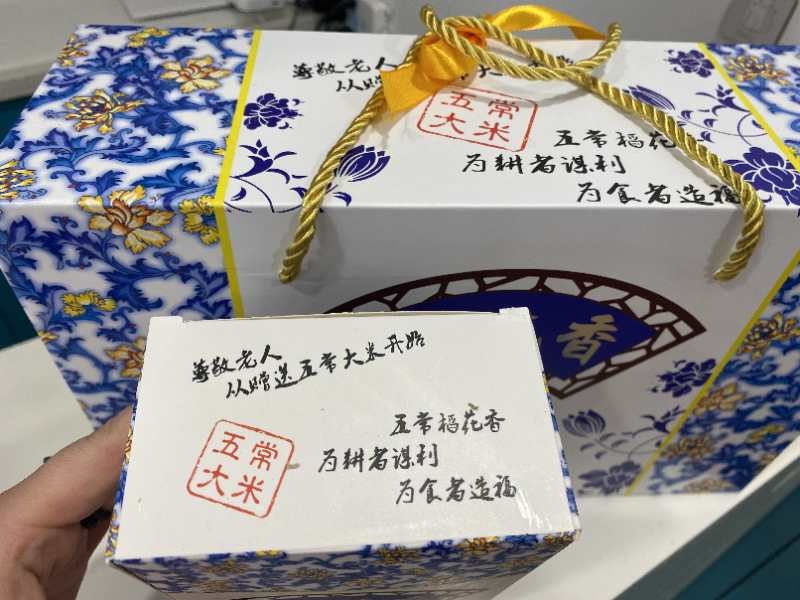 尊敬老人
从赠
五常
大米
五常稻花
为耕者谋利
为食者造福
香
尊敬老人
从赠送五常大米开始
五常
大米
五常稻花香
为耕者谋利
为食者造福